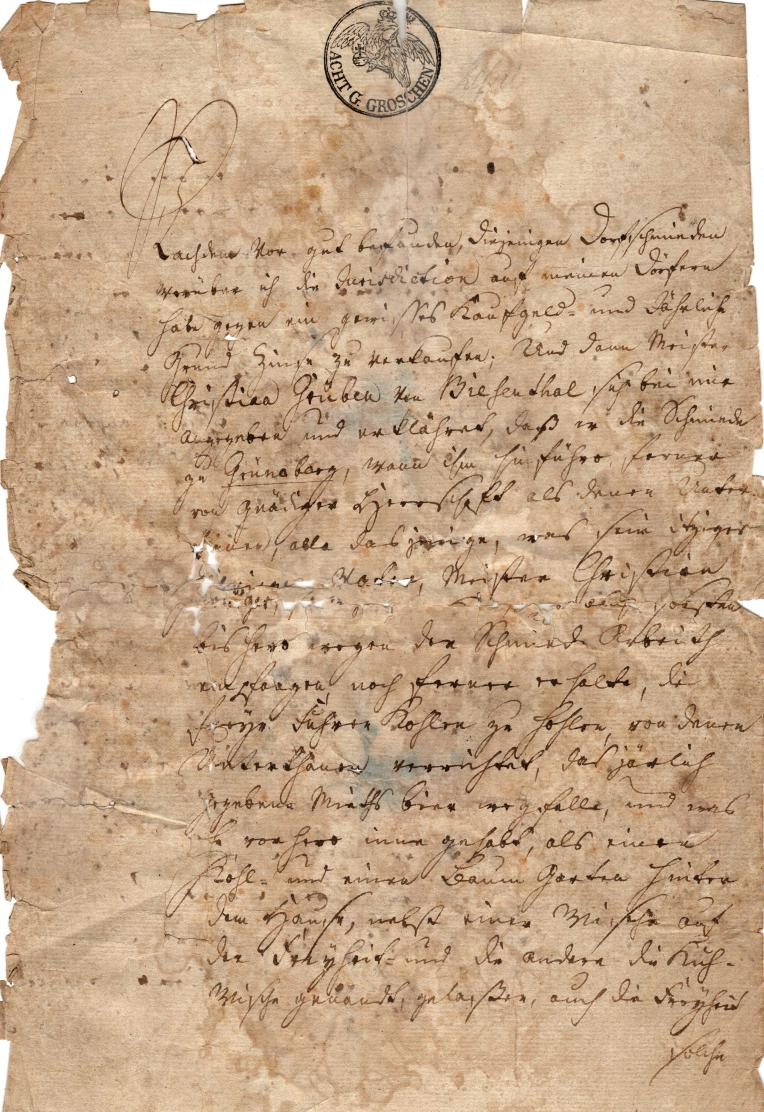 ACHT G. GROSCHEN
Nachdem Vor gut befunden, diejenigen Dorfschmieden
worüber ich die Jurisdiction auf meinen Dörfern
habe gegen ein gewisses Kaufgeld- und Jährliche
Grund Zinse zu verkaufen; Und dann Meister
Christian Gruben von Biesenthal sich bei mir
angegeben und erklähret, daß er die Schmiede
zu Grüneberg, wann ihm hinführo ferner
von gnädiger Herrschafft als denen Unter-
thanen, alle dasjenige, was sein itziger
Vater, Meister Christian
bishero wegen der Schmiede Arbeith
empfangen, noch ferner erhalte, die
freye Fuhren Kohlen zu hohlen, von denen
Unterthanen verrichtet, das järlich
gegebene Mieths bier wegfalle, und was
er vorhero inne gehabt, als einen
Kohl- und einen Baum Garten hinter
dem Hause, nebst einer Wische auf
der Freyheit und die andere die Kuh-
Wische genandt, gelaßen, auch die Freyheit
solche